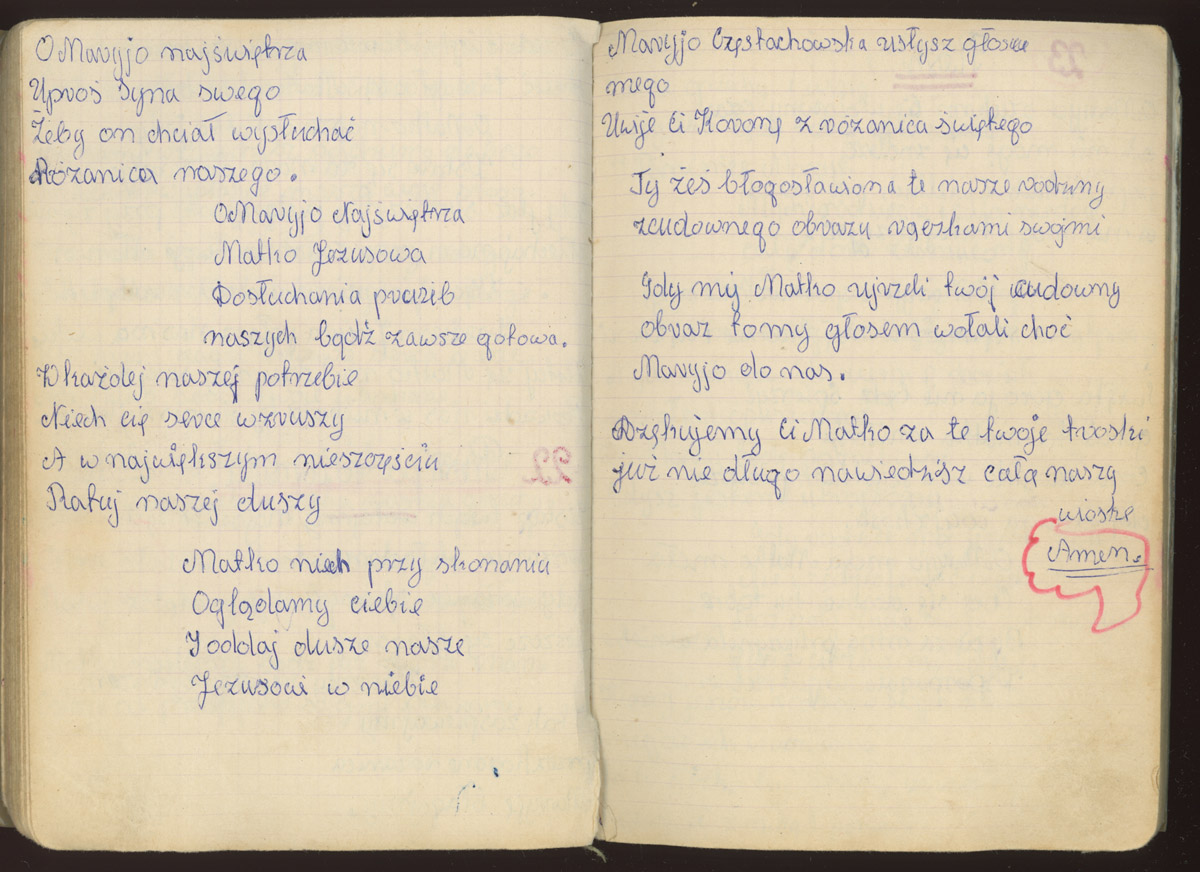 O Maryjo najświętrza
Uproś Syna swego
Żeby on chciał wysłuchać
Różanica naszego.
O Maryjo Najświętrza
Matko Jezusowa
Dosłuchania prużb
naszych bądź zawsze gotowa.
W każdej naszej potrzebie
Niech cię serce wzruszy
A w największym nieszczęściu
Ratuj naszej duszy
Matko niech przy skonaniu
Oglądamy ciebie
I oddaj dusze nasze
Jezusowi w niebie
Maryjo Częstachowska usłysz głosu
mego
Uwije Ci Koronę z różanica świętego
Ty żeś błogosławiona te nasze rodziny
zcudownego obrazu rączkami swojmi
Gdy my Matko ujrzeli twój cudowny
obraz tomy głosem wołali choć
Maryjo do nas.
Dzękujemy Ci Matko za te twoje troski
już nie długo nawiedzisz całą naszy
wioskę
Amen.
22
23